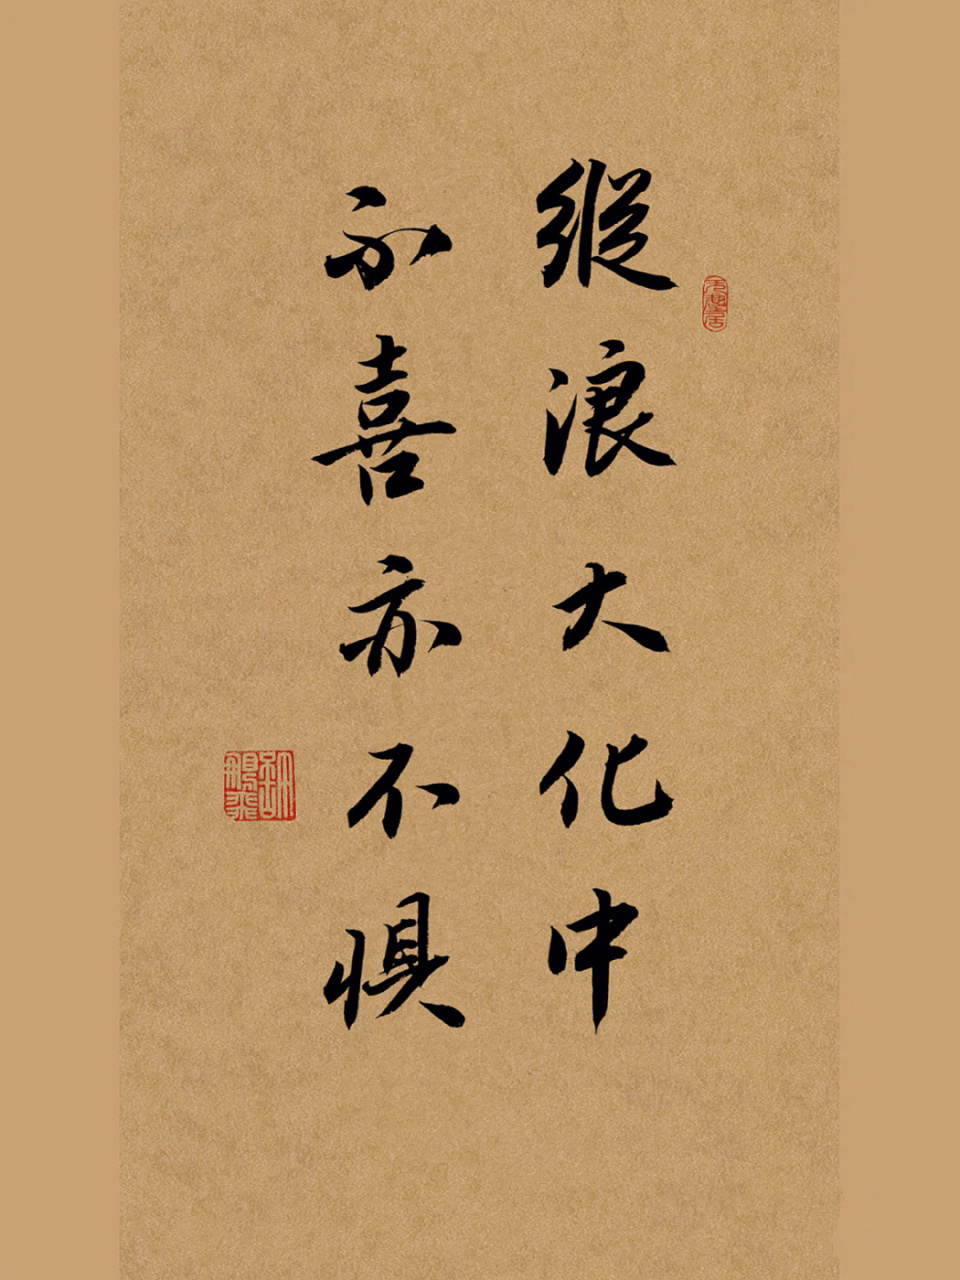 縱浪大化中
不喜亦不惧